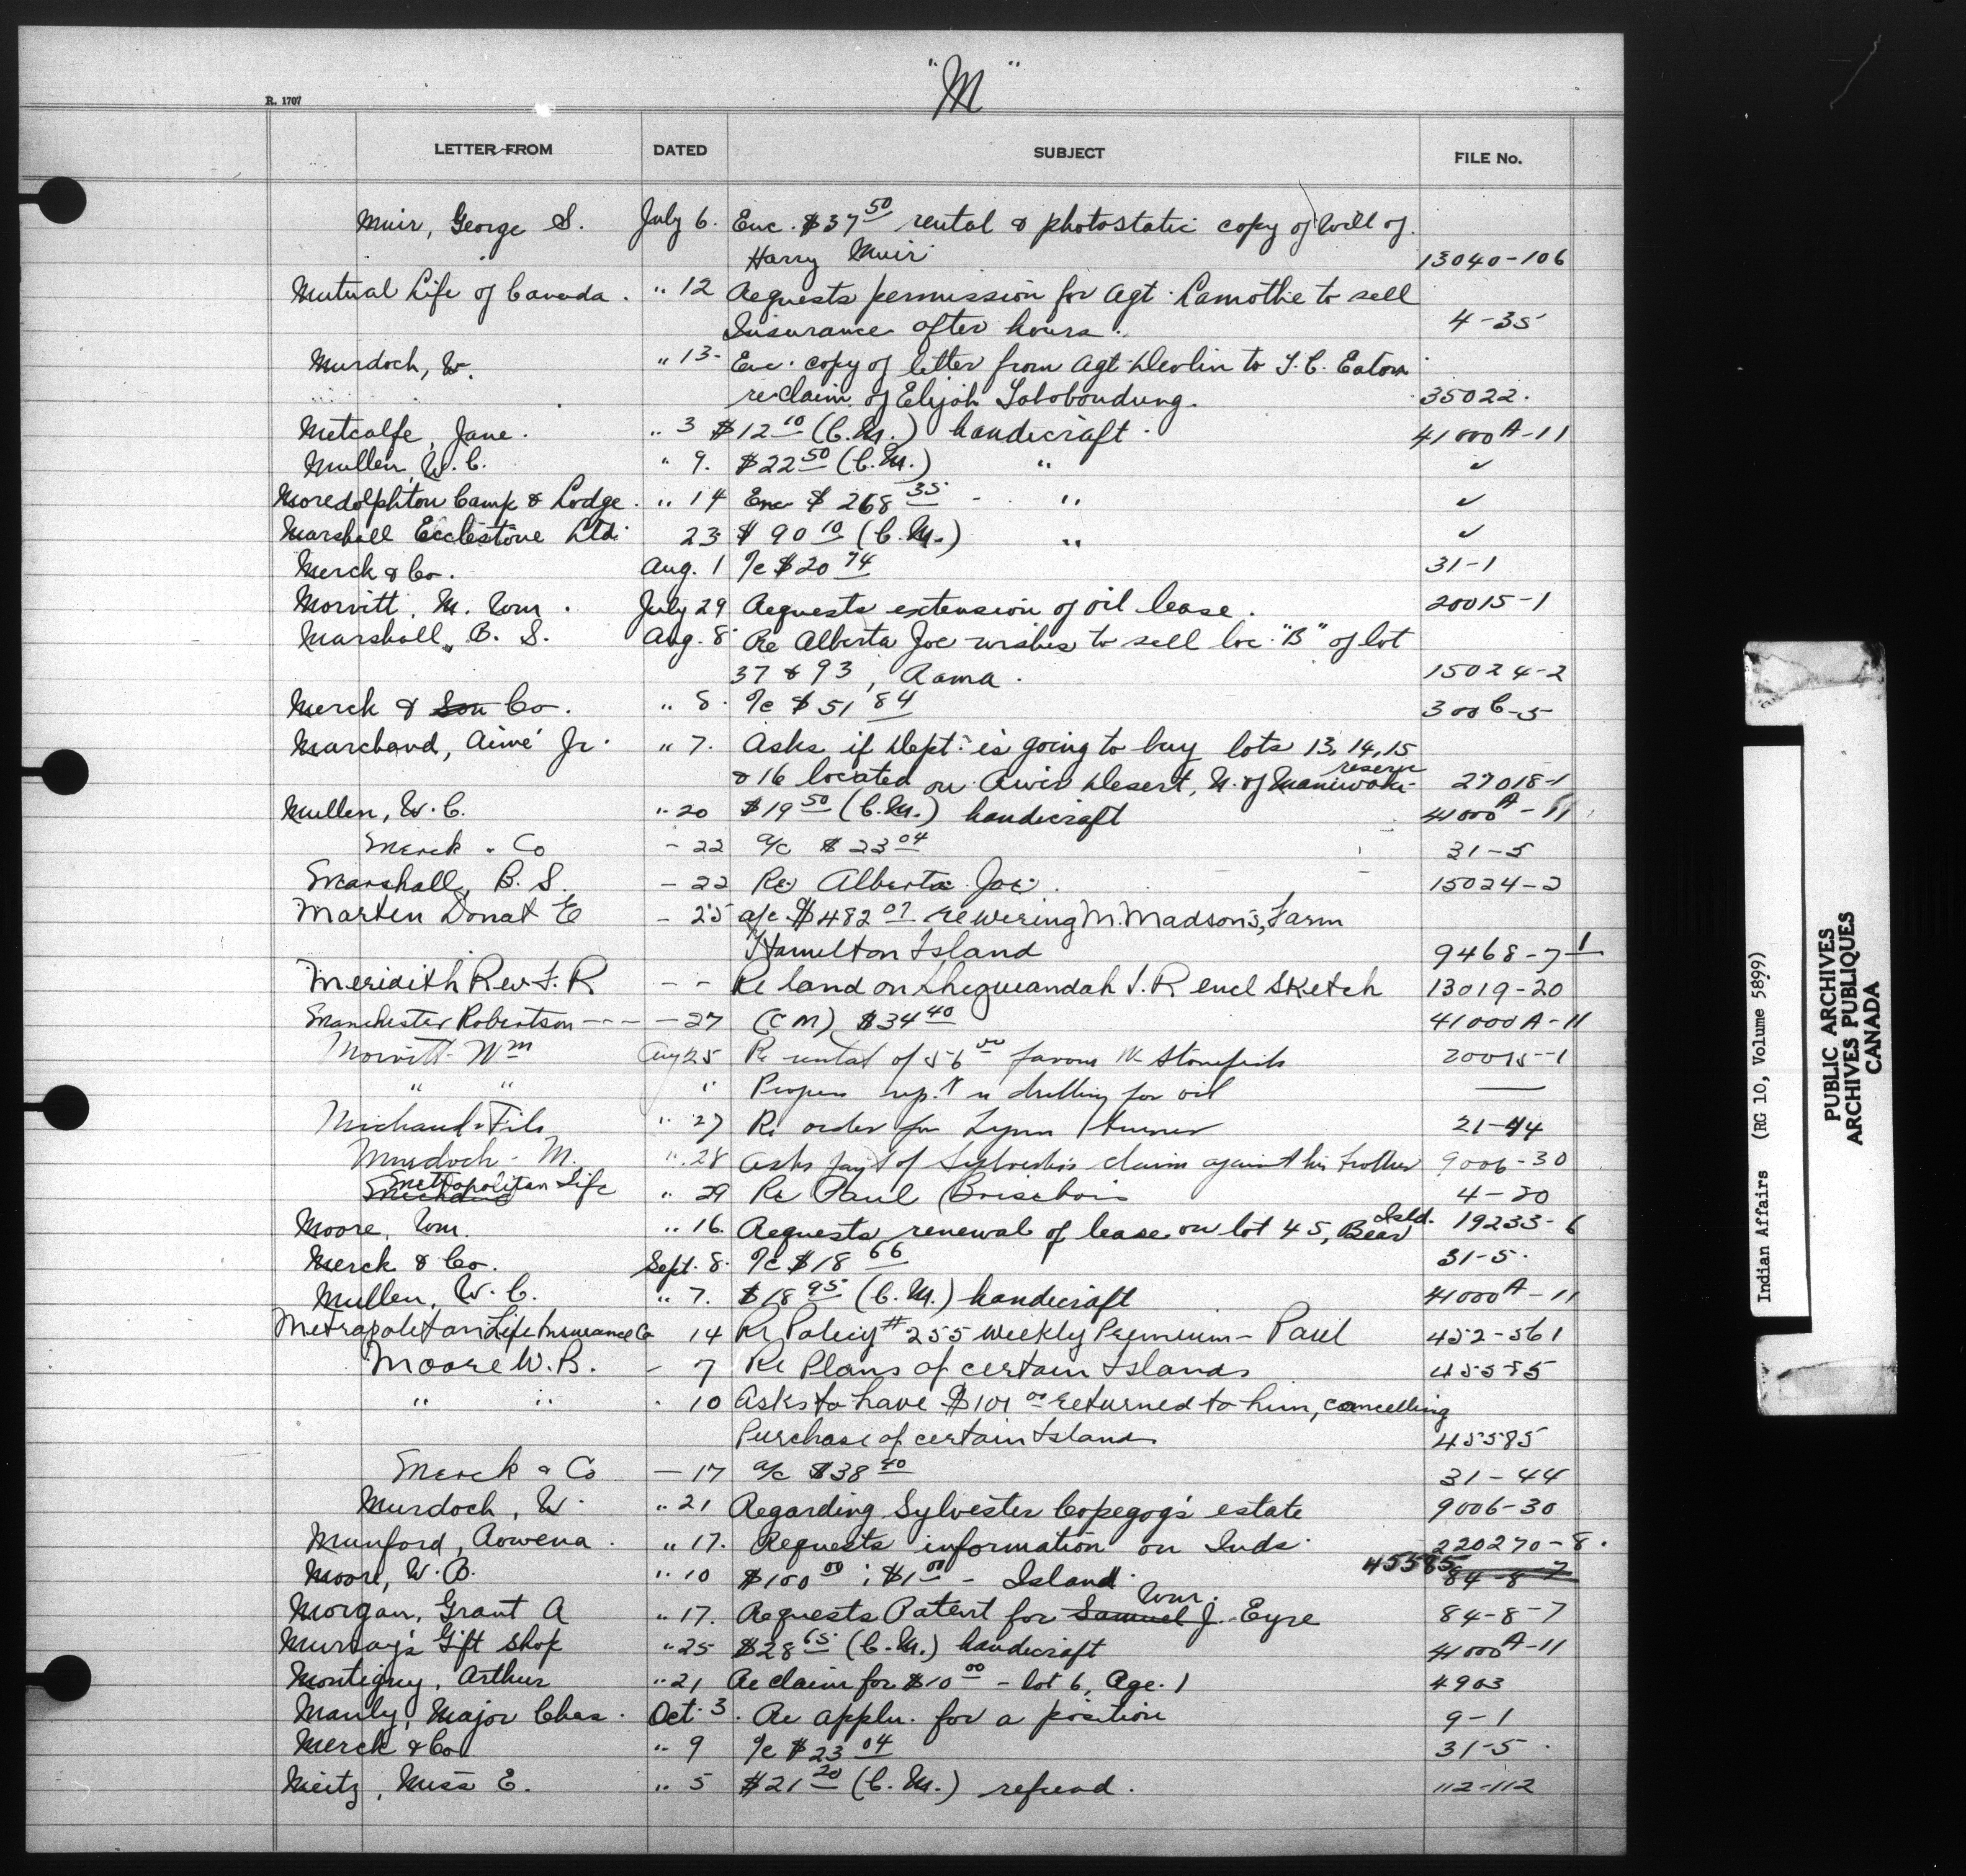 "M"
R. 1707
LETTER FROM DATED SUBJECT FILE No.
Muir, George S. July 6. Enc. $37 50 rental & photostatic copy of Will of
Harry Muir 13040-106
Mutual Life of Canada. " 12 Requests permission for Agt. Lamothe to sell
Insurance after hours. 4-35
Murdoch, W. " 13- Enc. copy of letter from Agt. Devlin to T. C. Eaton
re claim of Elijah 35022.
Metcalfe, Jane. " 3 $12 10 (C.M.) handicraft 41000A-11
Mullen, W. C. " 9. $22 50 (C.M.) " ✓
Moredolphton Camp & Lodge. " 14 Enc $ 268 35 - " ✓
Marshall Ecclestone Ltd. 23 $ 90 10 (C.M.) " ✓
Merck & Co. Aug. 1 a/c $20 74 31-1
Morvitt, M. Wm. July 29 Requests extension of oil lease. 20015-1
Marshall, B. S. Aug. 8 Re Alberta Joe wishes to sell loc. "B" of lot
37 & 93, Rama. 15024-2
Merck & Son Co. " 8. a/c $ 51 84 300C-5
Marchand, Aimé Jr. " 7. Asks if Dept. is going to buy lots 13, 14, 15
& 16 located on River Desert, N. of Maniwaki reserve 27018-1
Mullen, W. C. " 20 $19 50 (C.M.) handicraft 41000A-11
Merck & Co - 22 a/c $ 23 04 31-5
Marshall, B. S. - 22 Re Alberta Joe. 15024-2
Marten Donat E - 25 a/c $482 07 re wiring M. Madson's, Farm
Hamelton Island 9468-7-1
Meridith Rev F. R - - Re land on Sheguiandah I. R encl Sketch 13019-20
Manchester Robertson --- - 27 (C M) $34 40 41000A-11
Morvitt Wm Aug 25 Re rental of 56 00 favour 20015-1
" " " drilling for oil —
Michaud & Fils " 27 Re order for Lynn 21-44
Murdoch - M. " 28 Asks payt of Sylvester's claim against his brother 9006-30
Metropolitan Life " 29 Re Paul Brisebois 4-20
Moore, Wm. " 16. Requests renewal of lease on lot 45, Bear Isld. 19233-6
Merck & Co. Sept. 8. a/c $18 66 31-5.
Mullen, W. C. " 7. $18 95 (C.M.) handicraft 41000A-11
Metrapoletan Life Insurance Co 14 Re Policy # 255 Weekly Premium - Paul 452-561
Moore W. B. - 7 Re Plans of certain Islands 45585
" " 10 Asks to have $101 00 returned to him, cancelling
Purchase of certain Island 45585
Merck & Co - 17 a/c $38 40 31-44
Murdoch, W. " 21 Regarding Sylvester Copegog's estate 9006-30
Munford, Rowena. " 17. Requests information on Inds. 220270-8.
Moore, W. B. " 10 $100 00; $1 00 - Island 45585 84-8-7
Morgan, Grant A " 17. Requests Patent for Samuel Wm. J. Eyre 84-8-7
Murray's Gift Shop " 25 $28 65 (C.M.) handicraft 41000A-11
Montigny, Arthur " 21 Re claim for $10 00 - lot 6, Rge. 1 4903
Manly, Major Chas. Oct. 3. Re appln. for a position 9-1
Merck & Co. " 9 a/c $23 04 31-5
Meitz, Miss E. " 5 $21 20 (C.M.) refund. 112-112
Indian Affairs (RG 10, Volume 5899)
PUBLIC ARCHIVES
ARCHIVES PUBLIQUES
CANADA